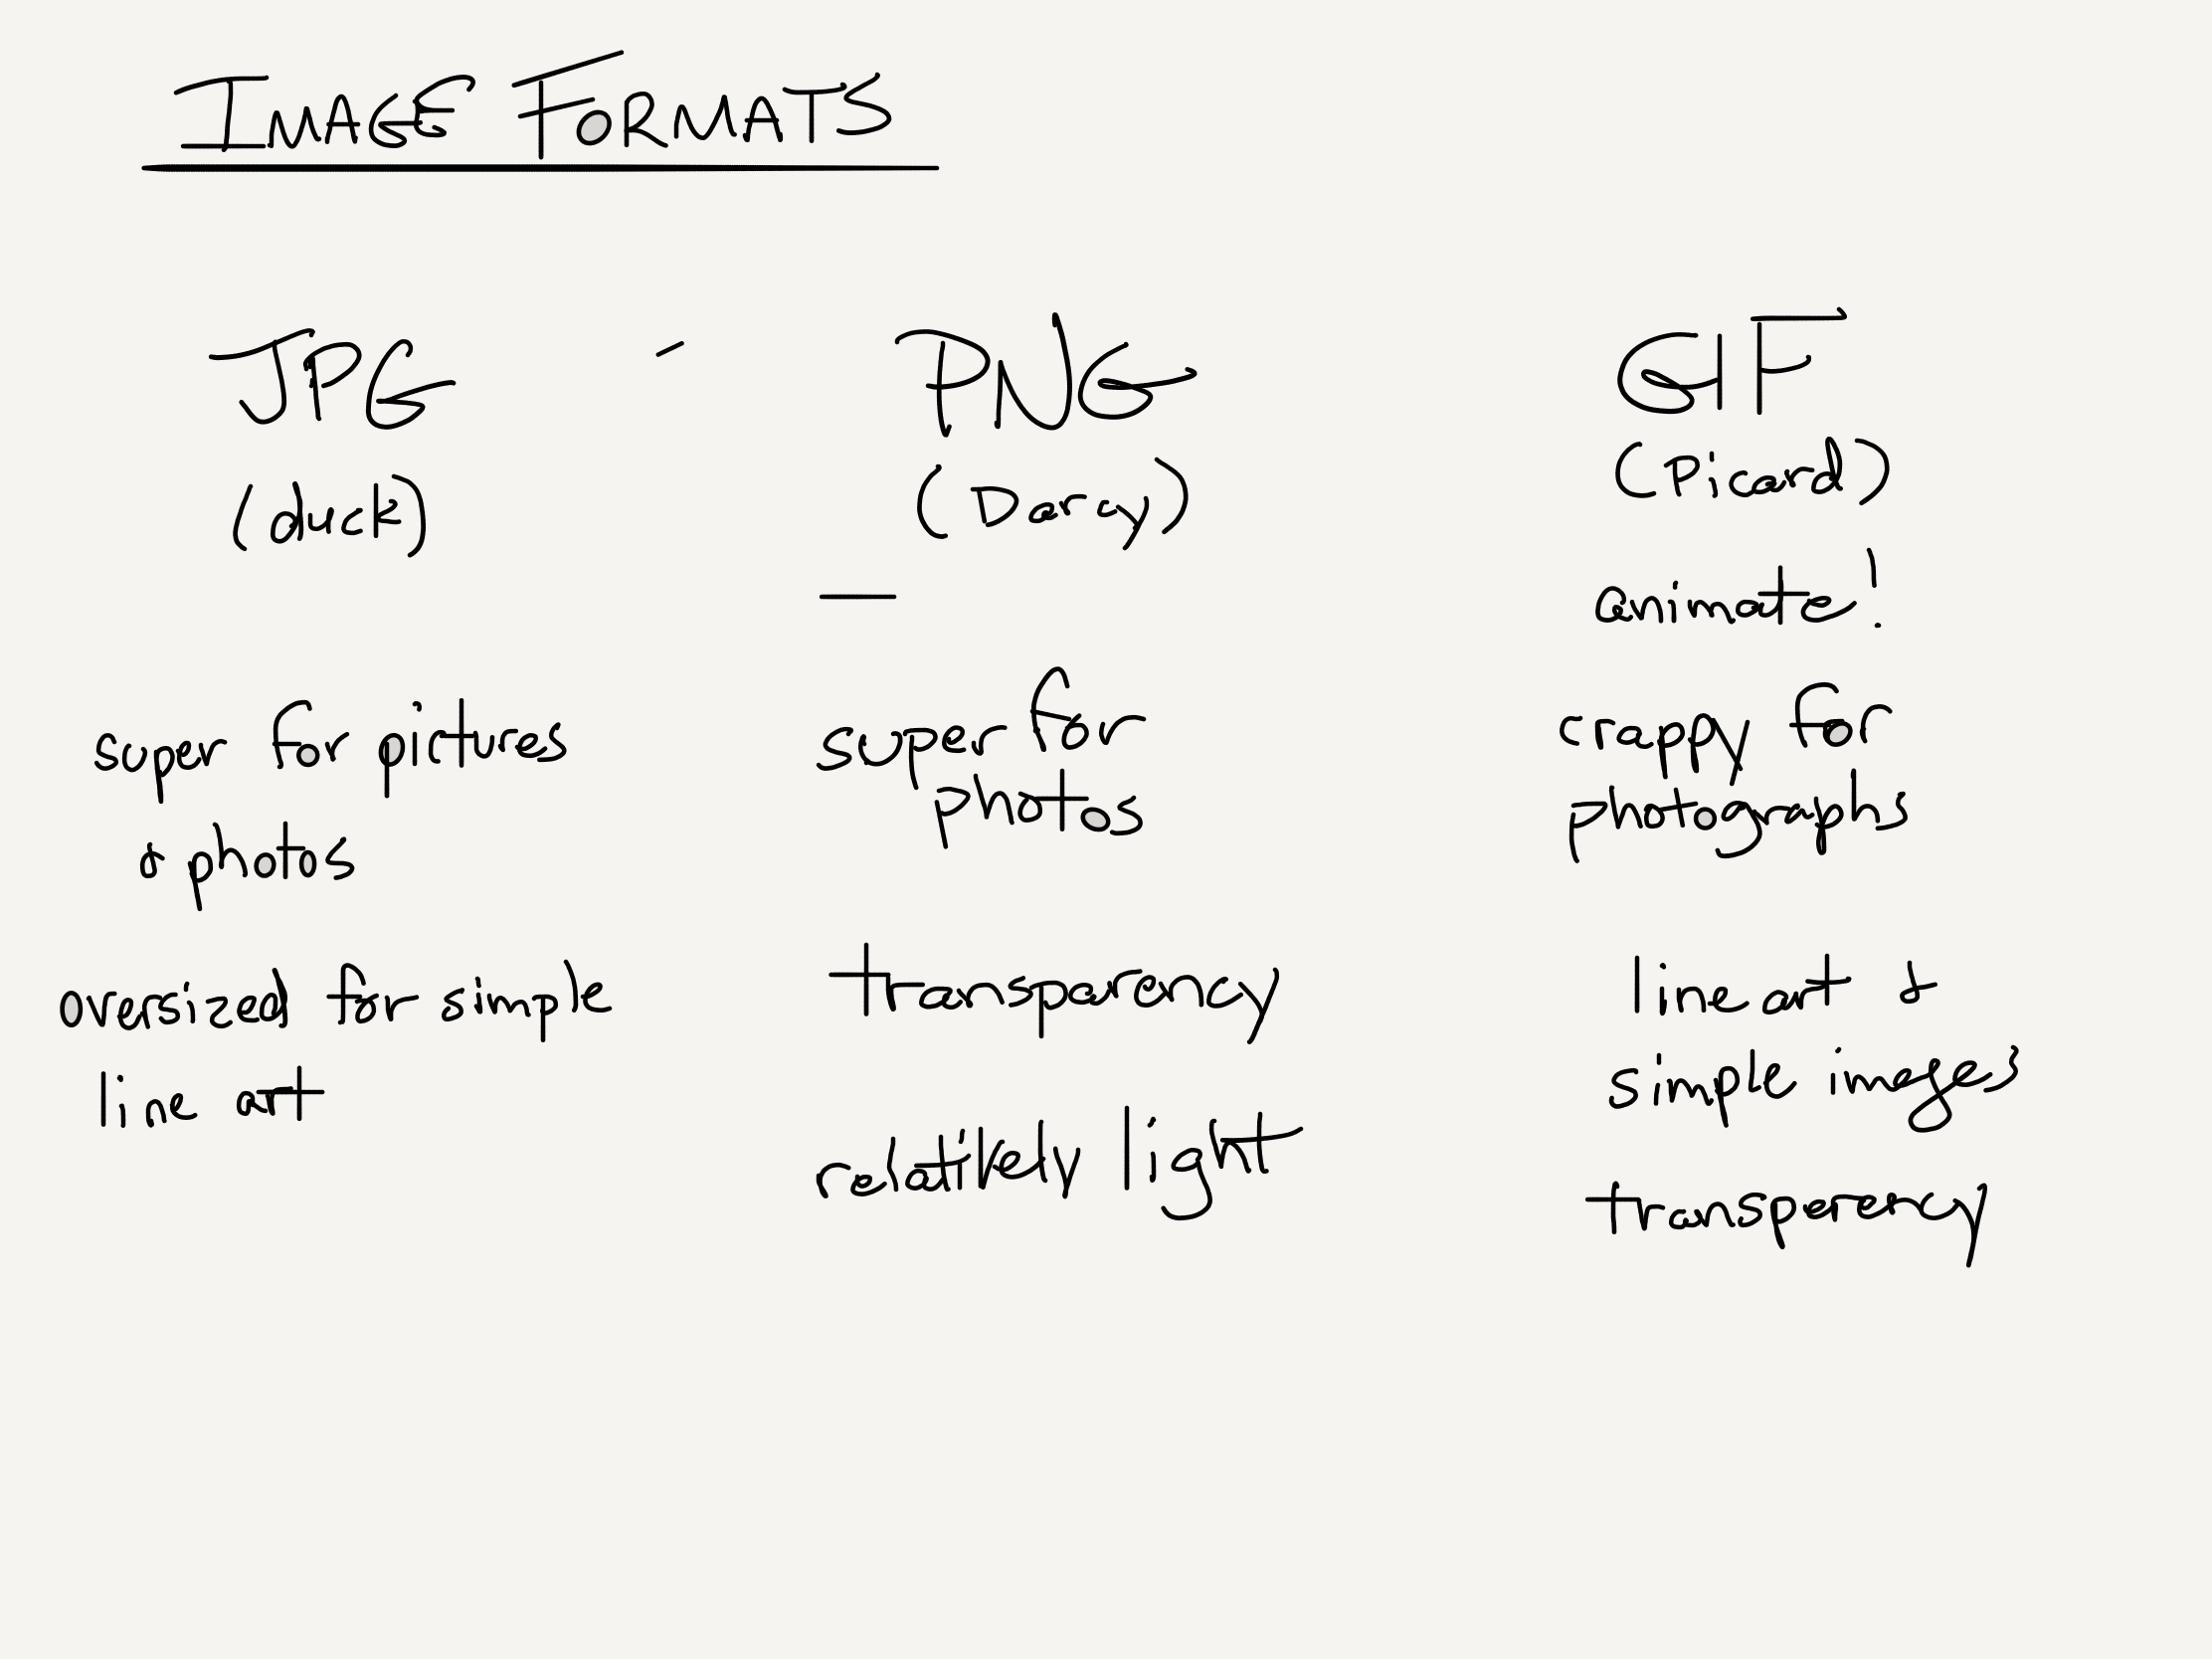 IMAGE FORMATS
JPG
(duck)
super for pictures
& photos
oversized for simple
line art
PNG
(Darcy)
super for
photos
transparency
relatively light
GIF
(Picard)
animate!
crappy for
photographs
line art &
simple images
transparency